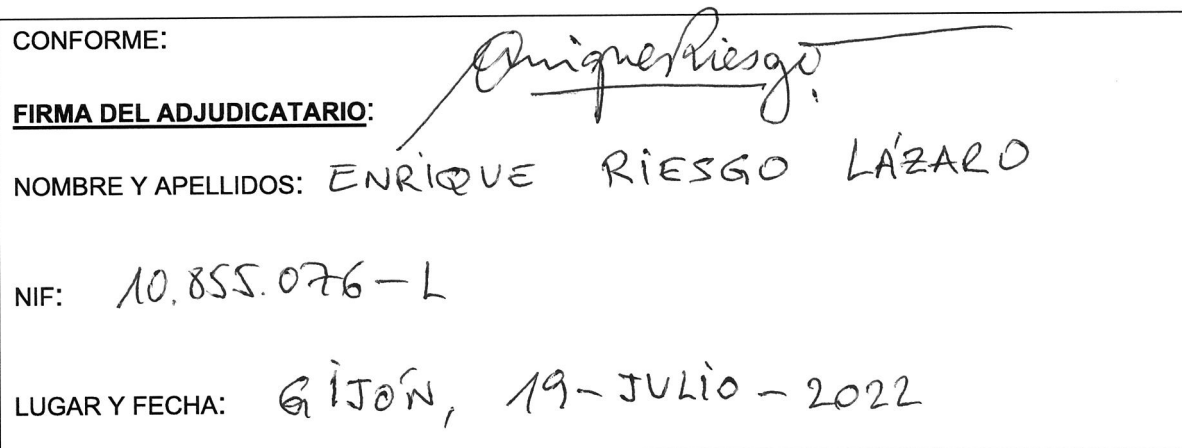 CONFORME:
Quique Riesgo
FIRMA DEL ADJUDICATARIO:
NOMBRE Y APELLIDOS: ENRIQUE RIESGO LÁZARO
NIF: 10.855.076-L
LUGAR Y FECHA: GIJÓN, 19-JULIO-2022